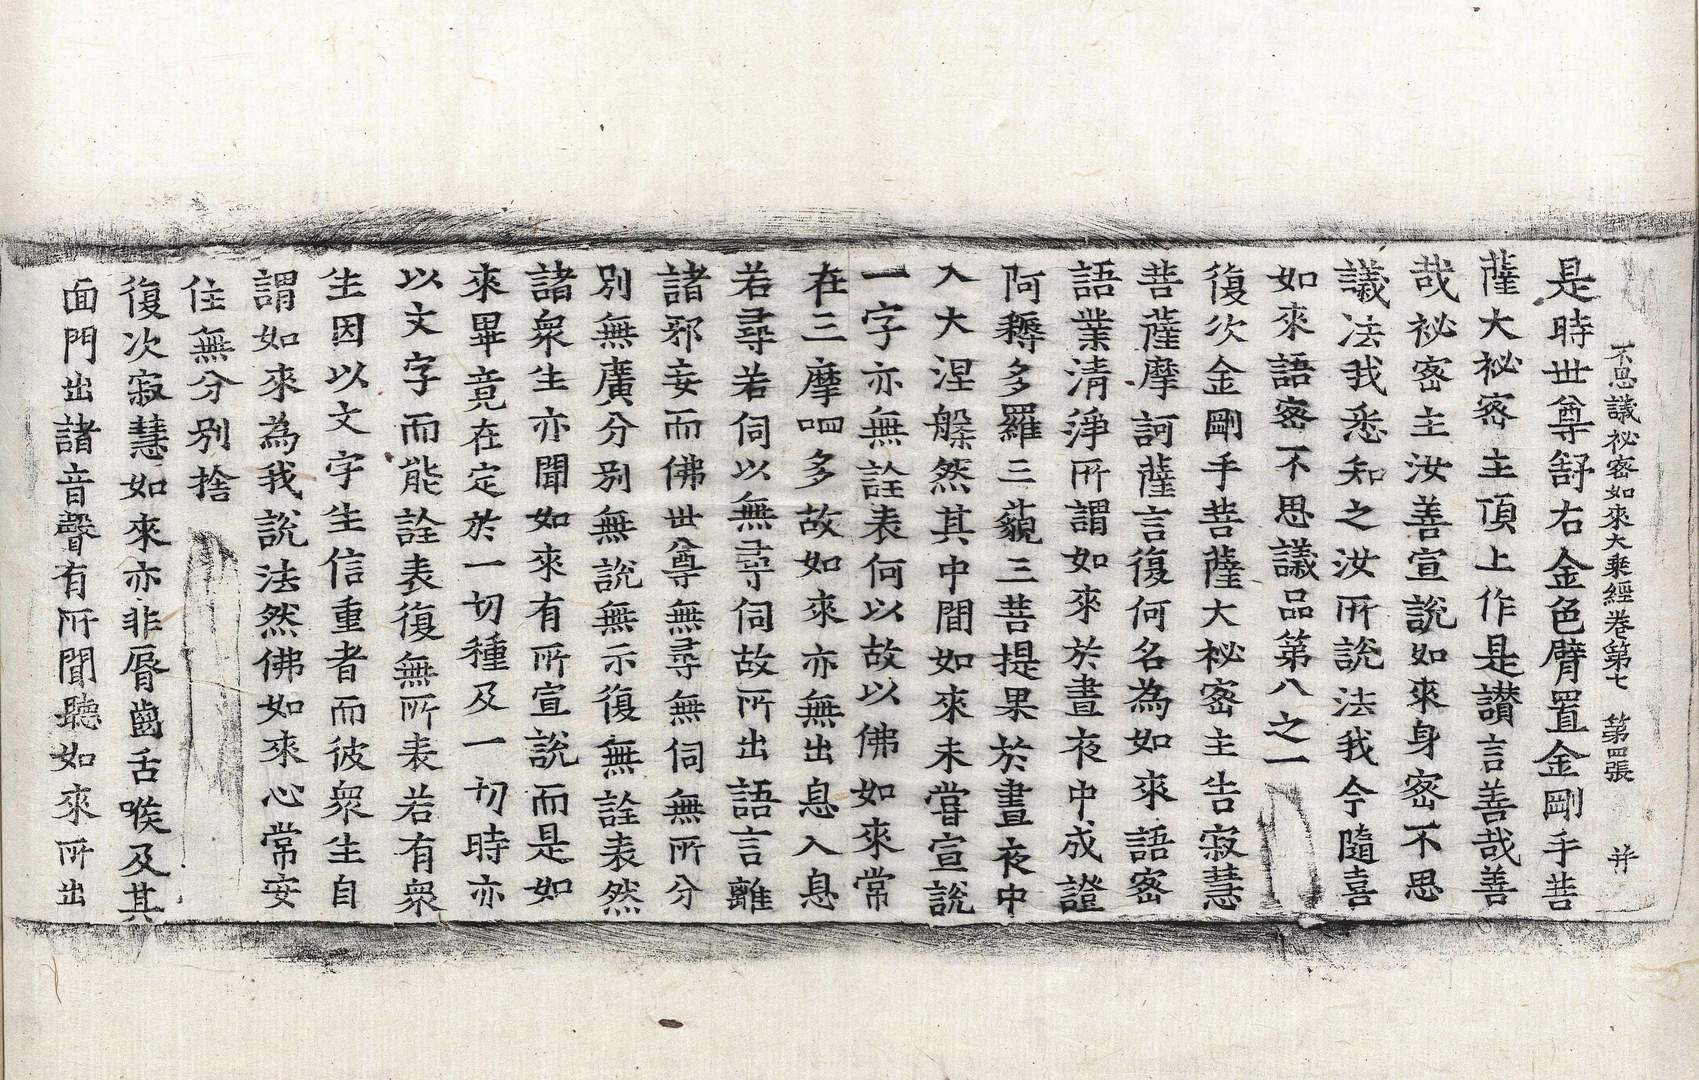 不思議祕密如來大乘經卷第七 第四張 并
是時世尊舒右金色臂置金剛手菩
薩大祕密主頂上作是讃言善哉善
哉祕密主汝善宣說如來身密不思
議法我悉知之汝所說法我今隨喜
如來語密不思議品第八之一
復次金剛手菩薩大祕密主告寂慧
菩薩摩訶薩言復何名為如來語密
語業清淨所謂如來於晝夜中成證
阿耨多羅三藐三菩提果於晝夜中
入大涅槃然其中間如來未甞宣說
一字亦無詮表何以故以佛如來常
在三摩呬多故如來亦無出息入息
若尋若伺以無尋伺故所出語言離
諸邪妄而佛世尊無尋無伺無所分
別無廣分別無說無示復無詮表然
諸衆生亦聞如來有所宣說而是如
來畢竟在定於一切種及一切時亦
以文字而能詮表復無所表若有衆
生因以文字生信重者而彼衆生自
謂如來為我說法然佛如來心常安
住無分別捨
復次寂慧如來亦非脣齒舌喉及其
面門出諸音聲有所聞聽如來所出